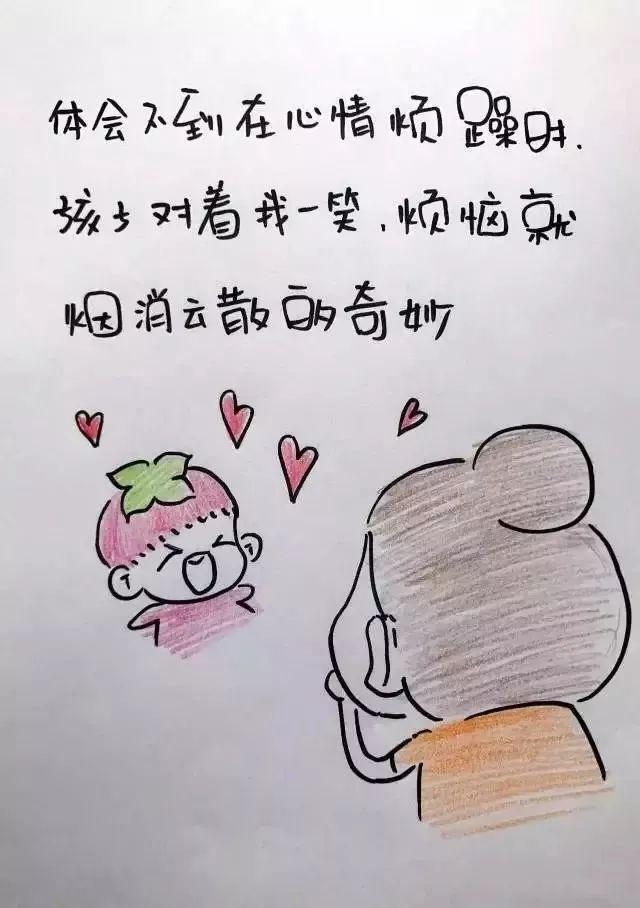 体会不到在心情烦躁时.
孩子对着我一笑,烦恼就
烟消云散的奇妙